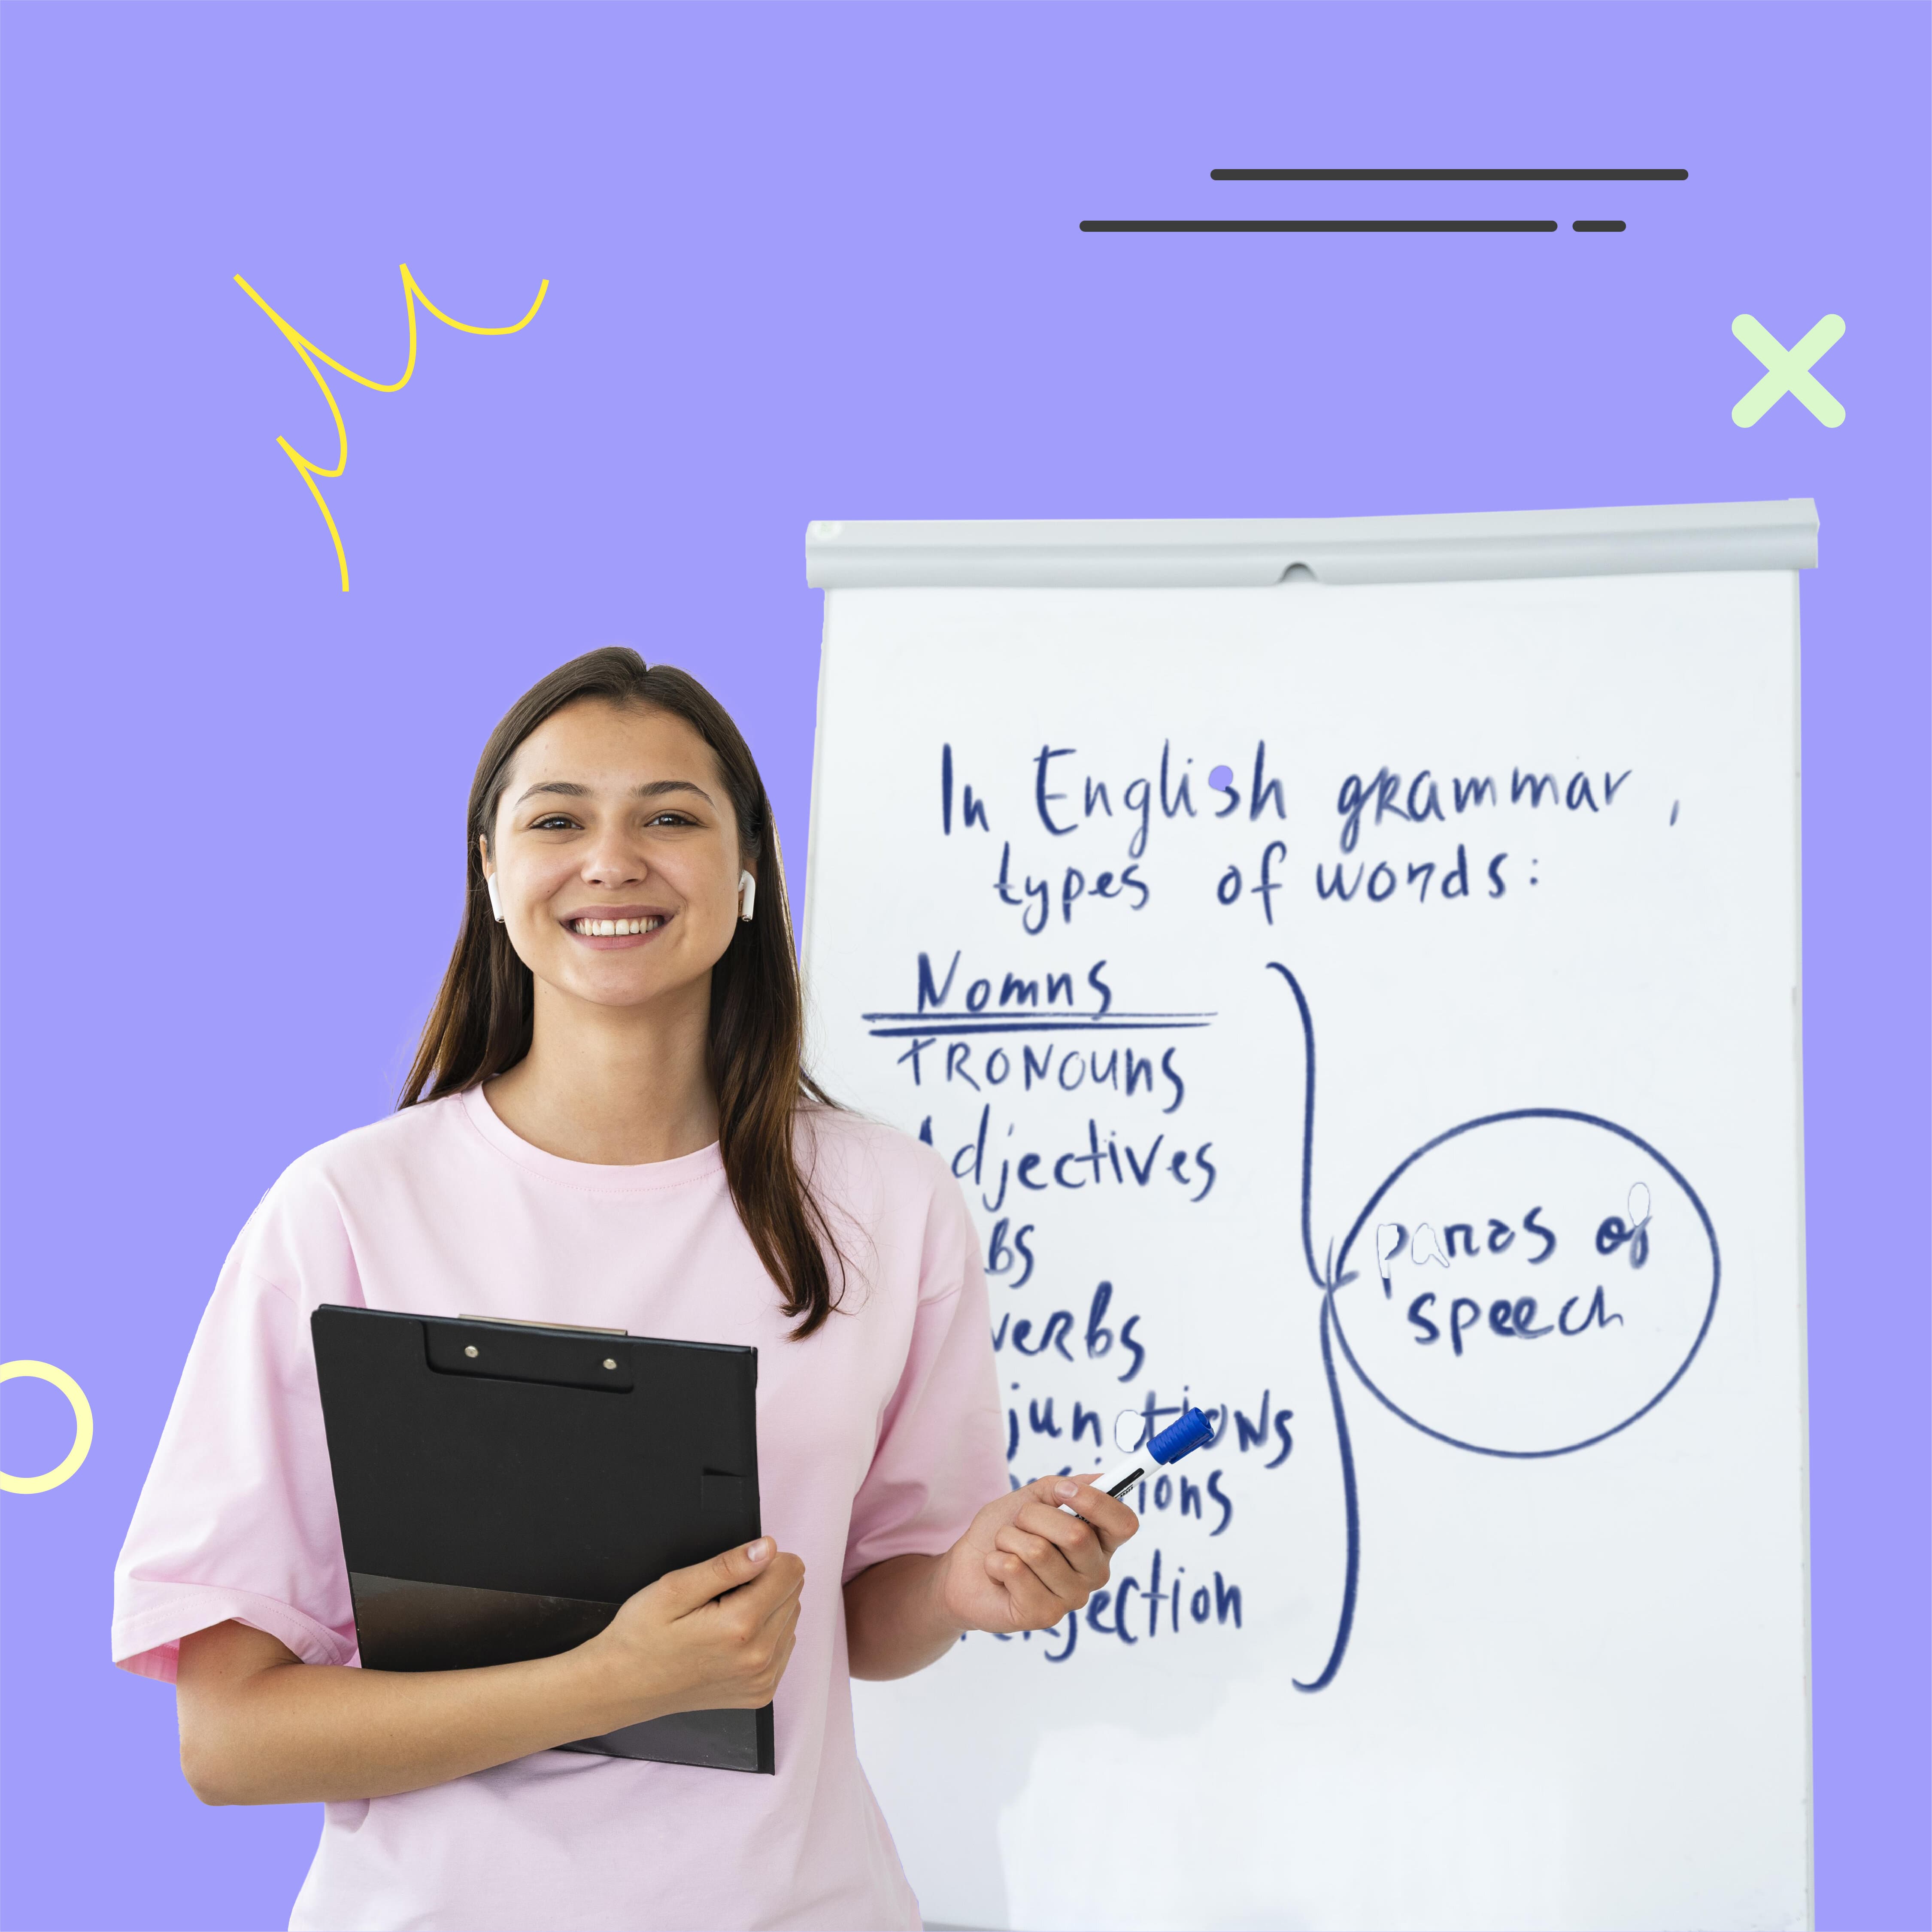 In English grammar,
types of words:
Nomns
TRONOUNS
Adjectives
bs
verbs
junctions
itions
jection
paras of
speech